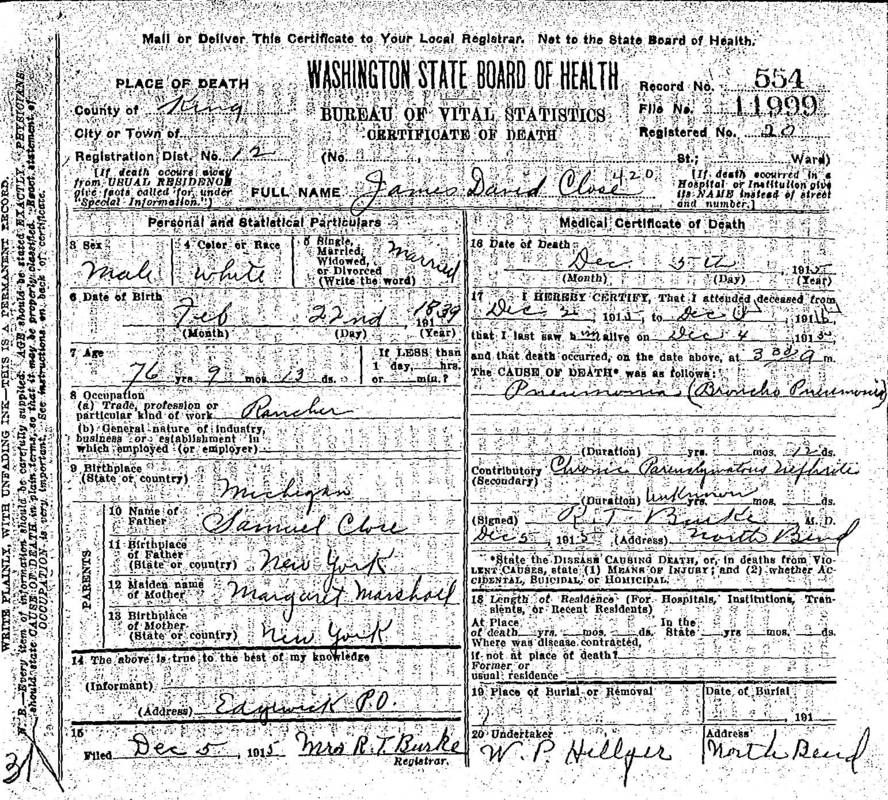 Mail or Deliver This Certificate to Your Local Registrar. Not to the State Board of Health.
PLACE OF DEATH
WASHINGTON STATE BOARD OF HEALTH
Record No. 554
County of King
BUREAU OF VITAL STATISTICS
File No. 11999
City or Town of
CERTIFICATE OF DEATH
Registered No. 20
Registration Dist. No. 12 (No. St.; Ward)
[If death occurs away from USUAL RESIDENCE give facts called for under "Special Information."]
FULL NAME James David Close 420
[If death occurred in a Hospital or Institution give its NAME instead of street and number.]
Personal and Statistical Particulars
3 Sex Male
4 Color or Race White
5 Single, Married, Widowed, or Divorced (Write the word) Married
6 Date of Birth
Feb 22nd 1839
(Month) (Day) 191 (Year)
7 Age
76 yrs. 9 mos. 13 ds.
If LESS than 1 day, hrs. or min.?
8 Occupation
(a) Trade, profession or particular kind of work Rancher
(b) General nature of industry, business or establishment in which employed (or employer)
9 Birthplace (State or country) Michigan
PARENTS
10 Name of Father Samuel Close
11 Birthplace of Father (State or country) New York
12 Maiden name of Mother Margaret Marshall
13 Birthplace of Mother (State or country) New York
14 The above is true to the best of my knowledge
(Informant)
(Address) Edgewick P.O.
15
Filed Dec 5 1915 Mrs R. T. Burke
Registrar.
Medical Certificate of Death
16 Date of Death
Dec. 5th 1915
(Month) (Day) (Year)
17 I HEREBY CERTIFY, That I attended deceased from
Dec 2 191 to Dec 191
that I last saw him alive on Dec 4 191
and that death occurred, on the date above, at 3 m.
The CAUSE OF DEATH* was as follows:
Pneumonia (Broncho Pneumonia)
(Duration) yrs. mos. 12 ds.
Contributory (Secondary) Chronic Parenchymatous Nephritis
(Duration) Unknown yrs. mos. ds.
(Signed) R. T. Burke M. D.
Dec 5 1915 (Address) North Bend
*State the DISEASE CAUSING DEATH, or, in deaths from VIOLENT CAUSES, state (1) MEANS OF INJURY; and (2) whether ACCIDENTAL, SUICIDAL, or HOMICIDAL.
18 Length of Residence (For Hospitals, Institutions, Transients, or Recent Residents)
At Place of death yrs. mos. ds. In the State yrs mos. ds.
Where was disease contracted, if not at place of death?
Former or usual residence
19 Place of Burial or Removal
Date of Burial
191
20 Undertaker W. P. Hillyer
Address North Bend
WRITE PLAINLY, WITH UNFADING INK—THIS IS A PERMANENT RECORD.
N. B.—Every item of information should be carefully supplied. AGE should be stated EXACTLY. PHYSICIANS should state CAUSE OF DEATH in plain terms, so that it may be properly classified. Exact statement of OCCUPATION is very important. See instructions on back of certificate.